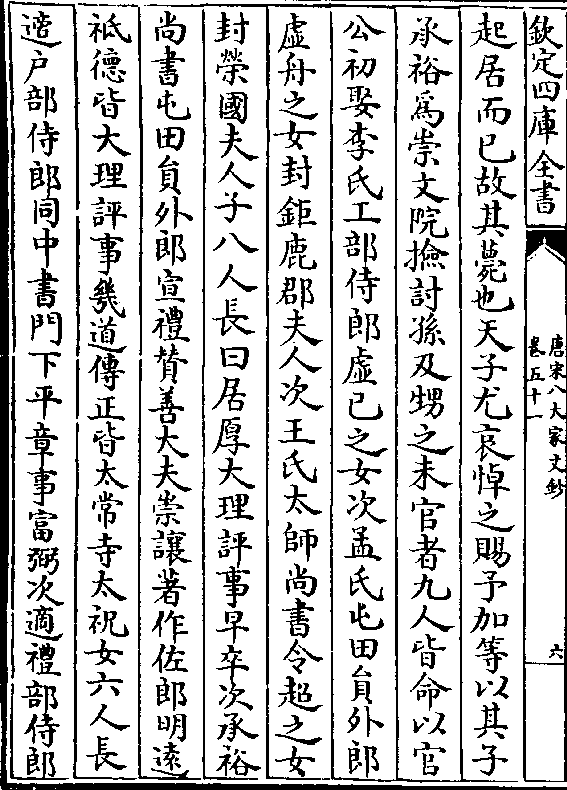 欽定四庫全書
唐宋八大家文鈔
卷五十一
六
起居而已故其薨也天子尤哀悼之賜予加等以其子
承裕爲崇文院撿討孫及甥之未官者九人皆命以官
公初娶李氏工部侍郎虛己之女次孟氏屯田員外郎
虛舟之女封鉅鹿郡夫人次王氏太師尚書令超之女
封榮國夫人子八人長曰居厚大理評事早卒次承裕
尚書屯田員外郎宣禮賛善大夫崇讓著作佐郎明遠
祗德皆大理評事幾道傳正皆太常寺太祝女六人長
適戶部侍郎同中書門下平章事富弼次適禮部侍郎